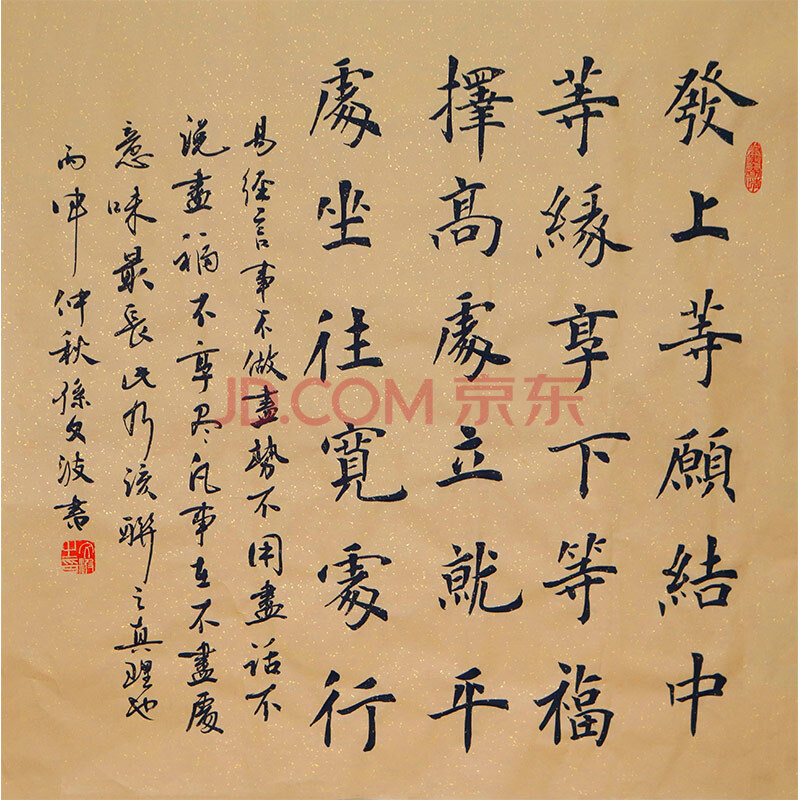 發上等願結中
等緣享下等福
擇高處立就平
處坐往寬處行
易經言事不做盡勢不用盡話不
说盡福不享尽凡事在不盡處
意味最長此乃該聯之真理也
丙申仲秋孫文波書
JD.COM 京东